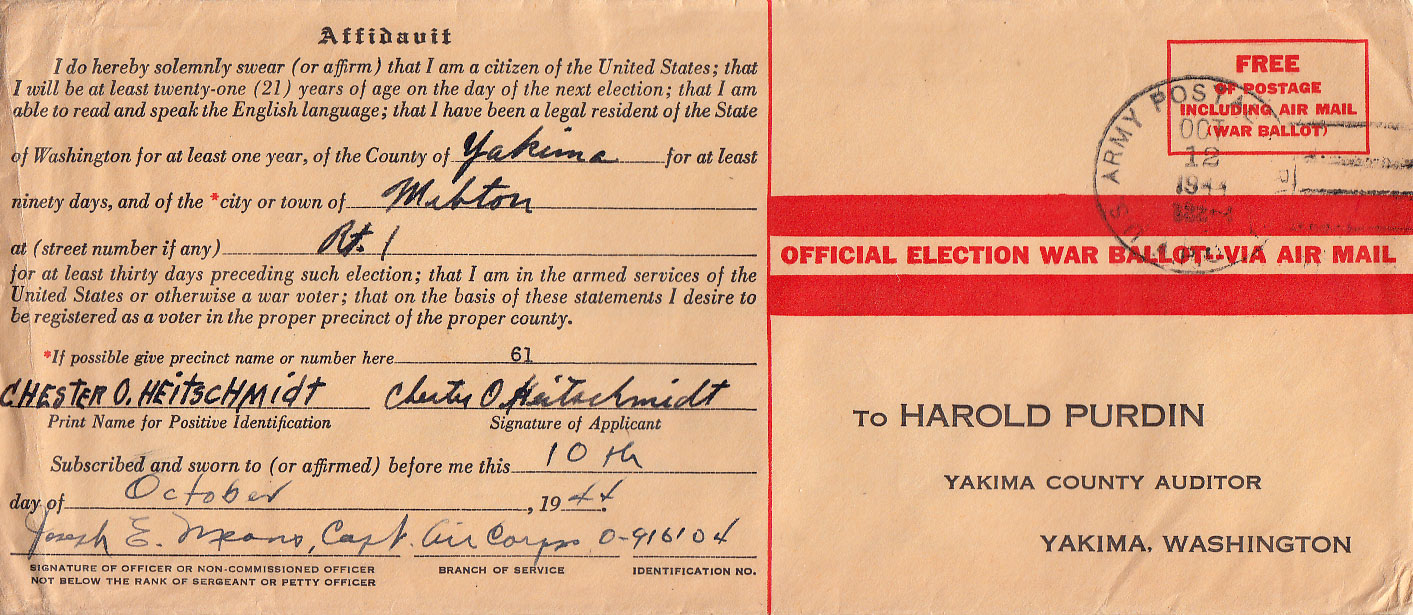 Affidavit
I do hereby solemnly swear (or affirm) that I am a citizen of the United States; that
I will be at least twenty-one (21) years of age on the day of the next election; that I am
able to read and speak the English language; that I have been a legal resident of the State
of Washington for at least one year, of the County of Yakima for at least
ninety days, and of the *city or town of Mabton
at (street number if any) Rt. 1
for at least thirty days preceding such election; that I am in the armed services of the
United States or otherwise a war voter; that on the basis of these statements I desire to
be registered as a voter in the proper precinct of the proper county.
*If possible give precinct name or number here 61
CHESTER O. HEITSCHMIDT Chester O. Heitschmidt
Print Name for Positive Identification Signature of Applicant
Subscribed and sworn to (or affirmed) before me this 10th
day of October, 1944.
Joseph E. Means, Capt. Air Corps O-916104
SIGNATURE OF OFFICER OR NON-COMMISSIONED OFFICER BRANCH OF SERVICE IDENTIFICATION NO.
NOT BELOW THE RANK OF SERGEANT OR PETTY OFFICER
FREE
OF POSTAGE
INCLUDING AIR MAIL
(WAR BALLOT)
U S ARMY POSTAL
OCT
12
1944
OFFICIAL ELECTION WAR BALLOT--VIA AIR MAIL
TO HAROLD PURDIN
YAKIMA COUNTY AUDITOR
YAKIMA, WASHINGTON